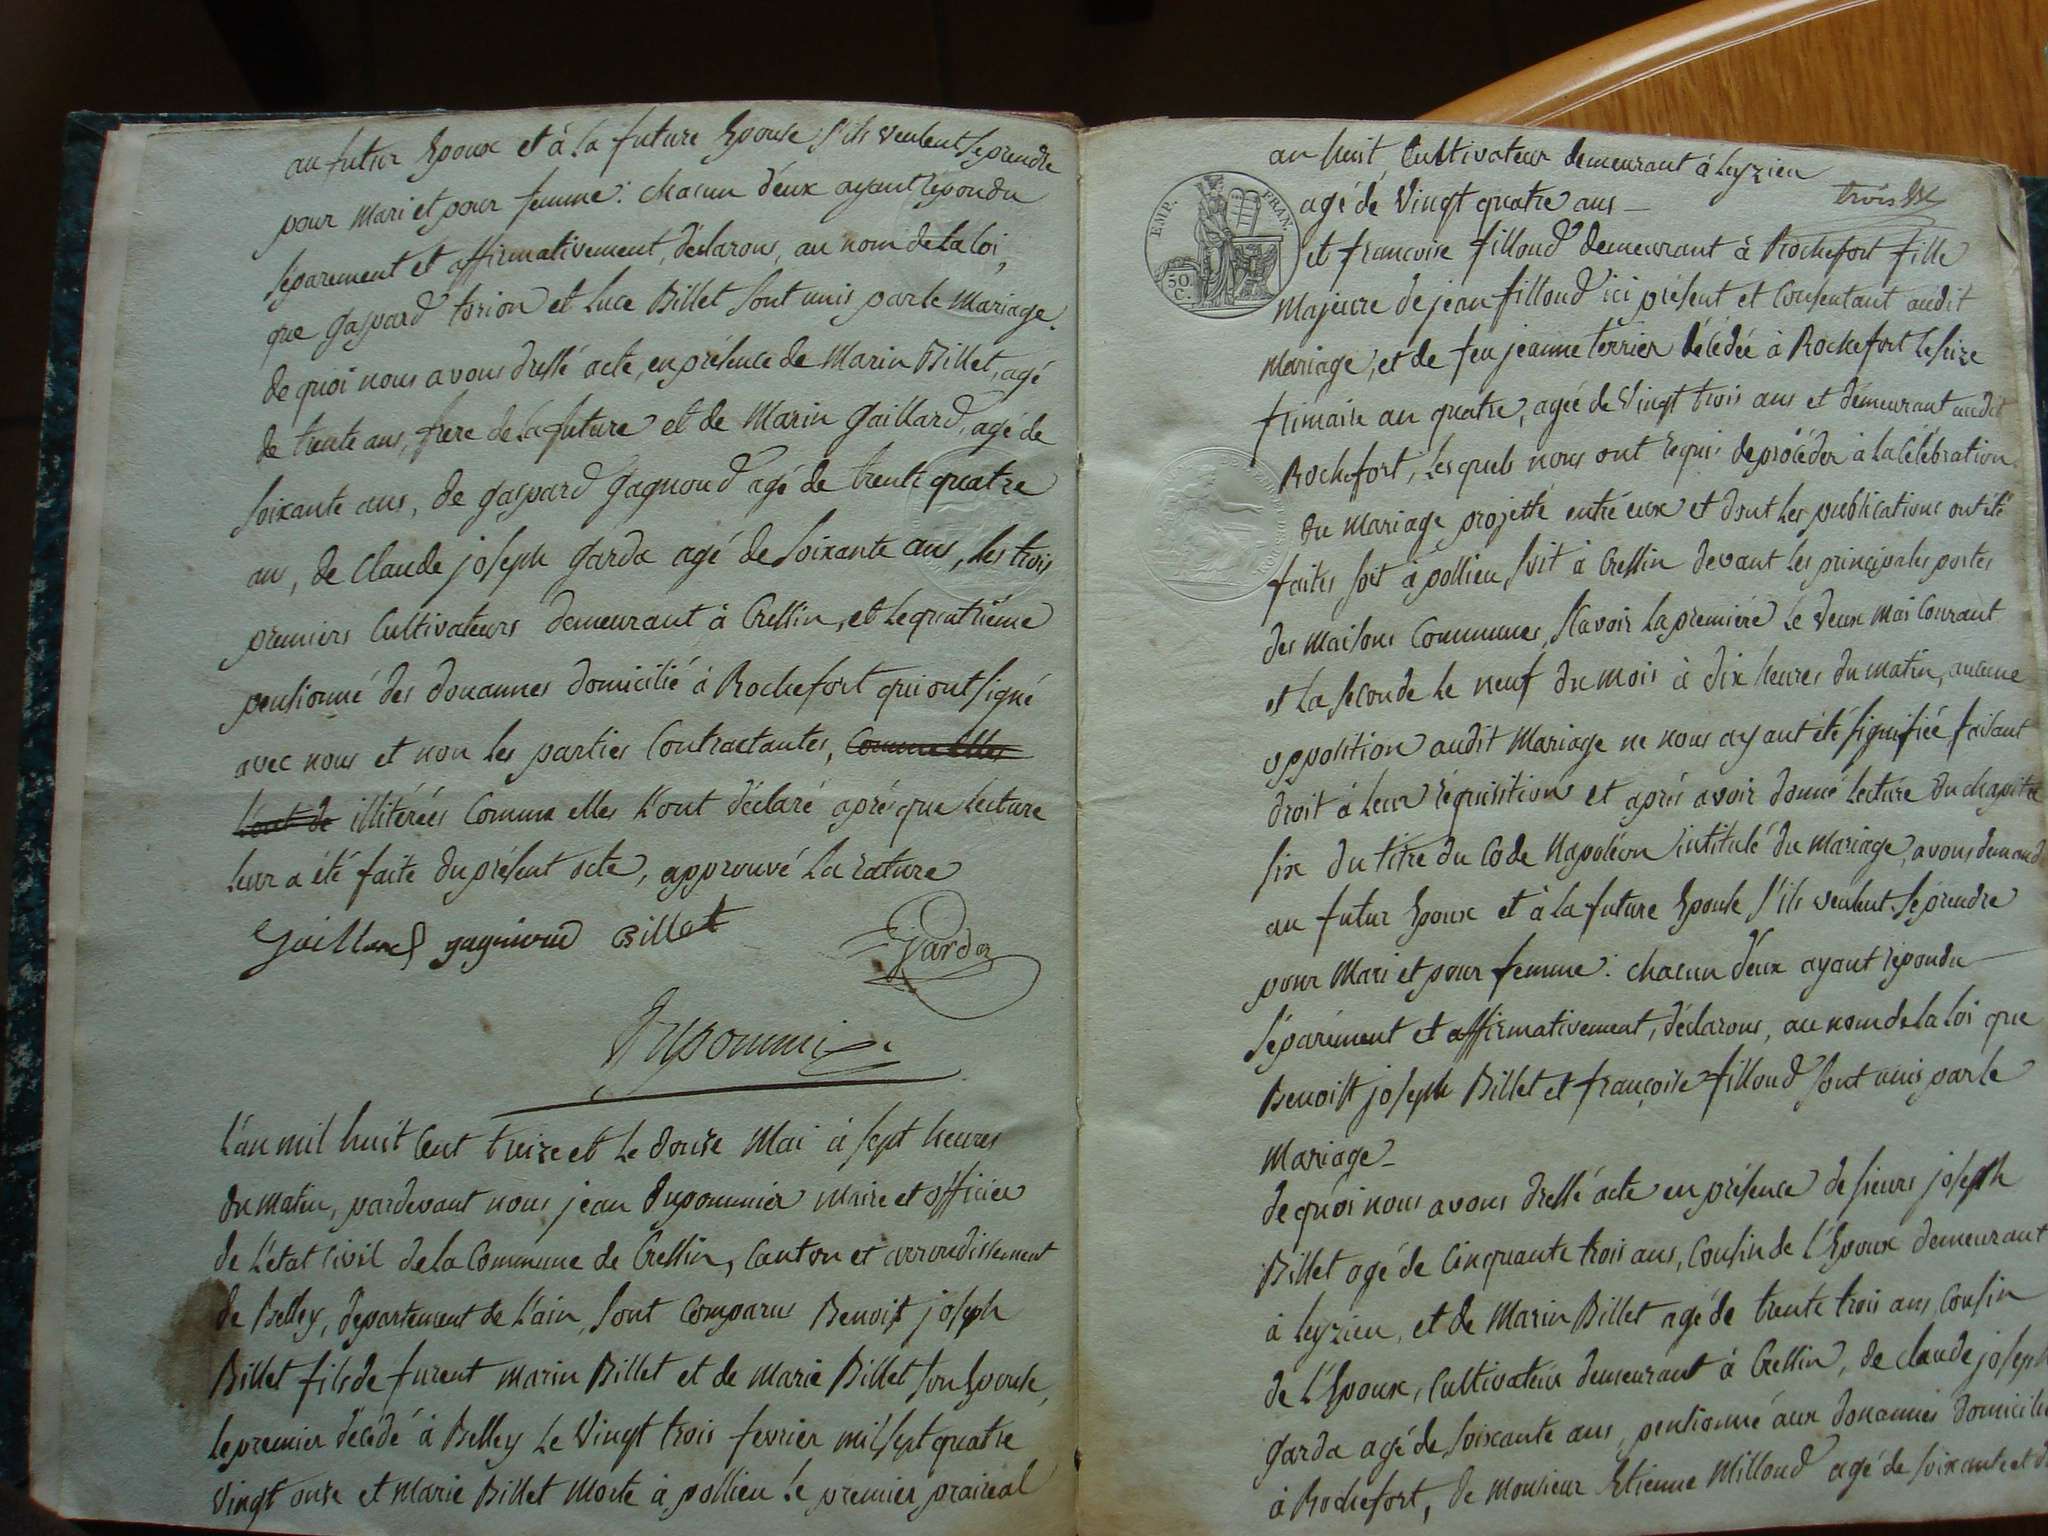 au futur Epoux et à la future Epouse s'ils veulent se prendre
pour mari et pour femme: chacun d'eux ayant répondu
séparement et affirmativement, déclarons, au nom de la loi,
que gaspard torion et Luce Billet sont unis par le mariage.
de quoi nous avons dressé acte, en présence de Marin Billet, agé
de trente ans, frere de la future et de Marin gaillard, agé de
soixante ans, de gaspard gagnoud agé de trente quatre
ans, de claude joseph garda agé de soixante ans, les trois
premiers Cultivateurs demeurant à Cressin, et le quatriéme
pensionné des douannes domicilié à Rochefort qui ont signé
avec nous et non les parties Contractantes, Comme elles
l'ont dé illitérées Comme elles l'ont déclaré après que lecture
leur a été faite du présent acte, approuvé la rature
Gaillard gagnioud Billet Garda
Dupommier
L'an mil huit Cent treize et le douze Mai à sept heures
du matin, pardevant nous jean dupommier maire et officier
de L'état Civil de la Commune de Cressin, Canton et arrondissement
de Belley, département de L'ain, sont Comparus Benoist joseph
Billet fils de furent Marin Billet et de Marie Billet son Epouse,
le premier décédé à Belley le vingt trois fevrier mil sept quatre
vingt onze et Marie Billet Morte à pollieu le premier praireal
an huit, Cultivateur demeurant à Leyzieu
trois
EMP. FRAN.
50 C.
agé de vingt quatre ans
et francoise filloud demeurant à Rochefort fille
Majeure de jean filloud ici présent et Consentant audit
Mariage, et de feu jeanne terrier décédée à Rochefort le seize
frimaire an quatre, agée de vingt trois ans et demeurant audit
Rochefort, lesquels nous ont requis de procéder à la Célébration
du mariage projetté entré eux et dont les publications ont été
faites soit à pollieu soit à Cressin devant les principales portes
des maisons Communes, sçavoir la premiére le deux mai Courant
et la seconde le neuf du mois à dix heures du matin, aucune
opposition audit Mariage ne nous ayant été signifiée faisant
droit à leur réquisition et après avoir donné lecture du chapitre
six du titre du Code Napoléon intitulé du mariage, avons demandé
au futur Epoux et à la future Epouse s'ils veulent se prendre
pour Mari et pour femme: chacun d'eux ayant répondu
séparément et affirmativement, déclarons, au nom de la loi que
Benoist joseph Billet et françoise filloud sont unis par le
Mariage
de quoi nous avons dressé acte en présence de sieurs joseph
Billet agé de Cinquante trois ans, Cousin de L'Epoux demeurant
à Leyzieu, et de Marin Billet agé de trente trois ans, Cousin
de L'Epoux, Cultivateur demeurant à Cressin, de claude joseph
garda agé de soixante ans, pensionné aux douannes domicilié
à Rochefort, de Monsieur Etienne Milloud agé de soixante et